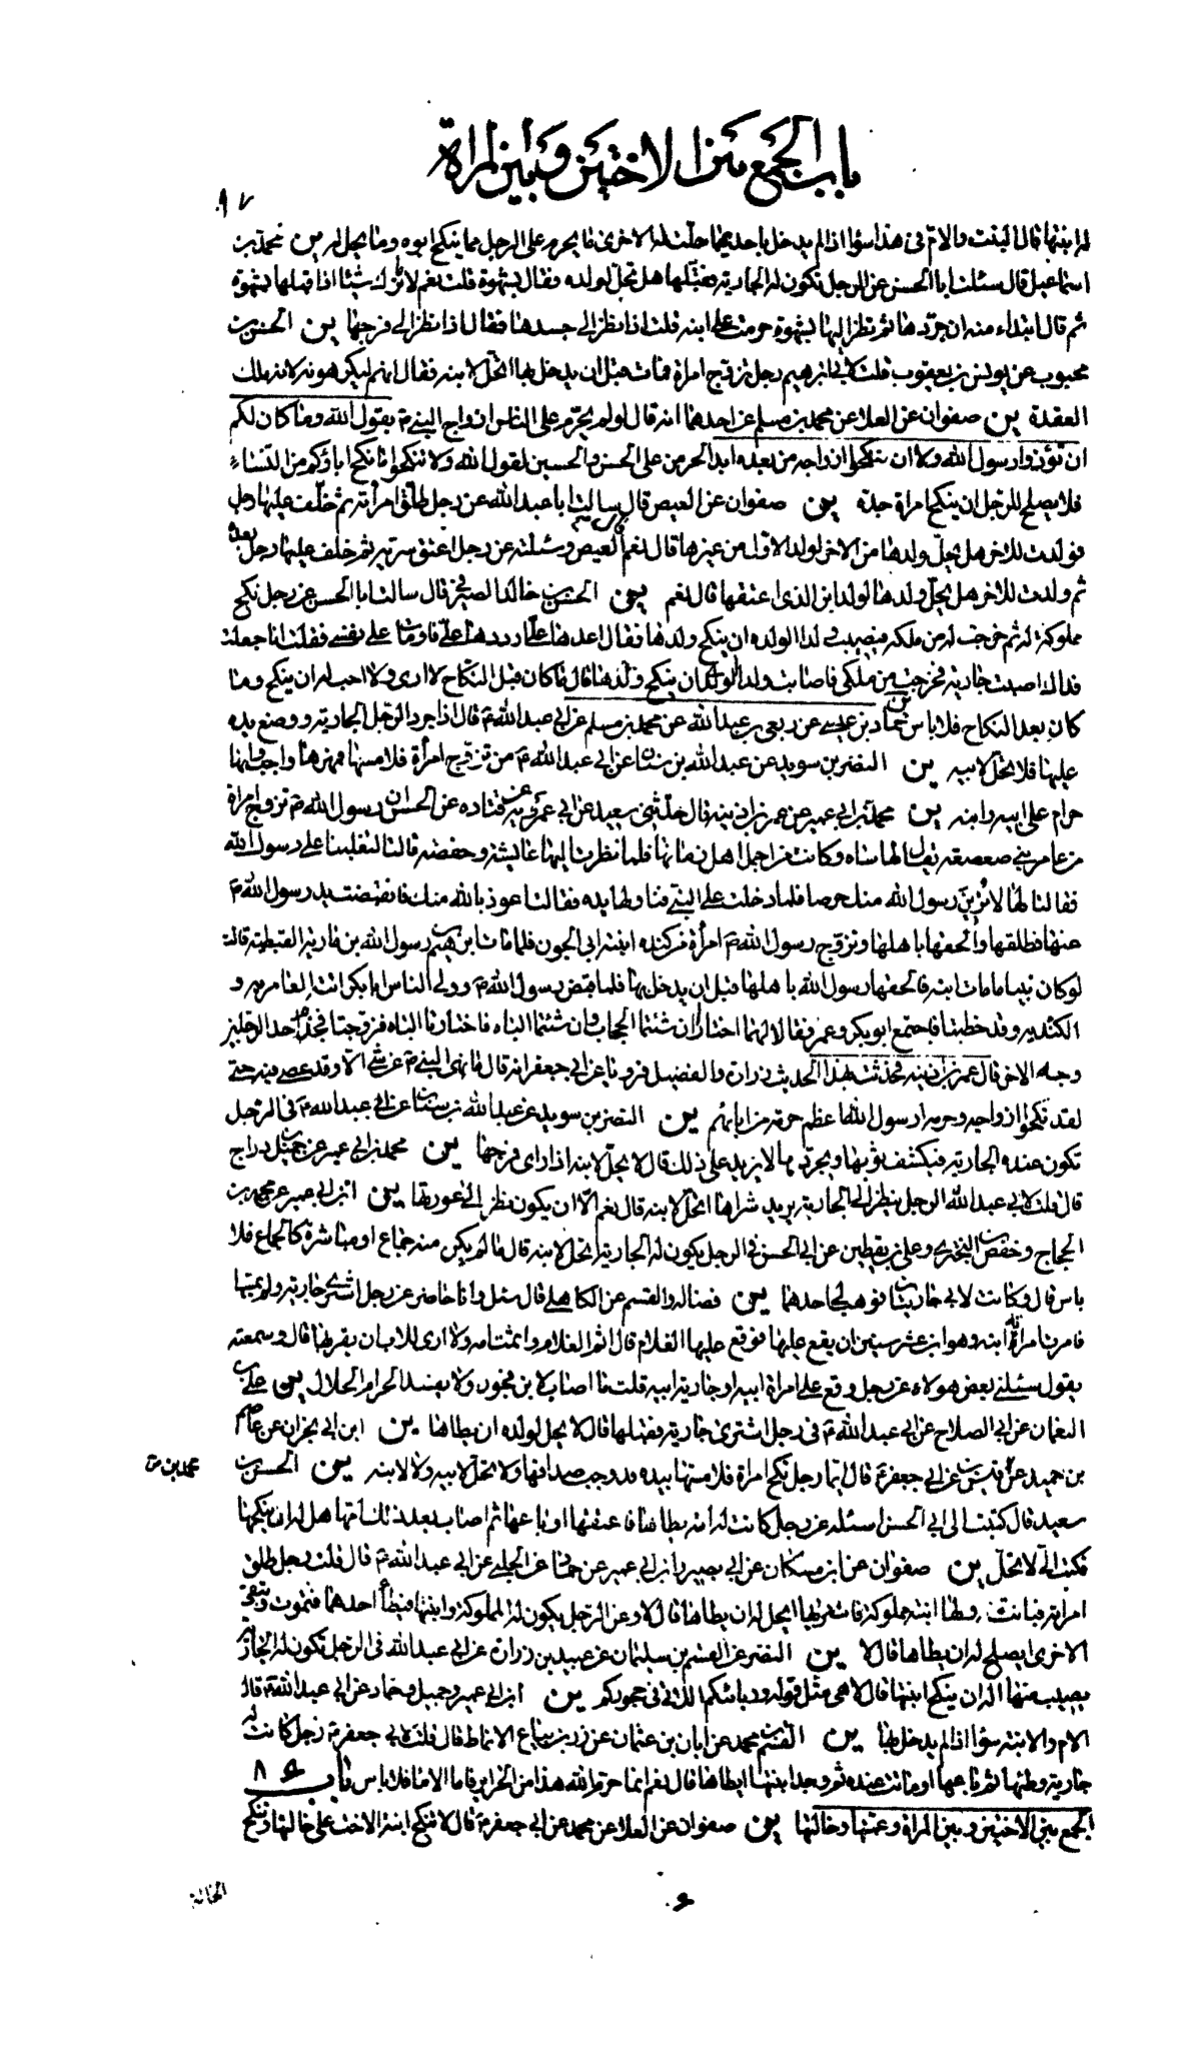 باب الجمع بين الاختين وبين المراة
٩٧
له ابنتها قال البنت والام فى هذا سواء اذا لم يدخل باحديهما حلت له الاخرى ما يحرم على الرجل مما ينكح ابوه وما يحل له ين محمد بن
اسماعيل قال سئلت ابا الحسن عن الرجل تكون له الجارية فيقبلها هل تحل لولده فقال بشهوة قلت نعم قال ما ترك شيئا اذا قبلها بشهوة
ثم قال ابتداء منه ان جردها ثم نظر اليها بشهوة حرمت على ابنه قلت اذا نظر الى جسدها فقال اذا نظر الى فرجها ين الحسن بن
محبوب عن يونس بن يعقوب قلت لابى ابرهيم رجل تزوج امراة فمات قبل ان يدخل بها اتحل لابنه فقال انهم ليكرهونه لانه ملك
العقدة ين صفوان عن العلا عن محمد بن مسلم عن احدهما انه قال لو لم يحرم على الناس ازواج النبى ص بقول الله وما كان لكم
ان تؤذوا رسول الله ولا ان تنكحوا ازواجه من بعده ابدا لحرمن على الحسن والحسين لقول الله ولا تنكحوا ما نكح اباؤكم من النساء
فلا يصلح للرجل ان ينكح امراة جده ين صفوان عن العيص قال سالت ابا عبد الله عن رجل طلق امرأته ثم خلف عليها رجل
فولدت للاخر هل يحل ولدها من الاخر لولد الاول من غيرها قال نعم العيص وسئلته عن رجل اعتق سرية ثم خلف عليها رجل بعده
ثم ولدت للاخر هل يحل ولدها لولد الذى اعتقها قال نعم ين الحسن بن خالد الصيرفى قال سالت ابا الحسن عن رجل نكح
مملوكة له ثم خرجت من ملكه فيصيب ولدا الولده ان ينكح ولدها فقال اعدها على فرددها على فاومات على نفسى فقلت انا جعلت
فداك اصبت جارية فخرجت من ملكى فاصابت ولدا الولدى ان ينكح ولدها قال ما كان قبل النكاح لا ارى ولا احب له ان ينكح وما
كان بعد النكاح فلا باس حماد بن عيسى عن ربعى بن عبد الله عن محمد بن مسلم عن ابى عبد الله ع قال اذا جرد الرجل الجارية ووضع يده
عليها فلا تحل لابيه ين النضر بن سويد عن عبد الله بن سنان عن ابى عبد الله ع من تزوج امرأة فلامسها فمهرها واجب وانها
حرام على ابيه وابنه ين محمد بن ابى عمير عن عمر بن اذينه قال حدثنى سعيد بن ابى عروة عن قتاده عن الحسن ان رسول الله ص تزوج امراة
من عامر بنى صعصعه يقال لها سناه وكانت من اجمل اهل زمانها فلما نظرت اليها عايشة وحفصه قالتا لتغلبنا على رسول الله
فقالتا لها لا يرين رسول الله منك حرصا فلما دخلت على النبى تناولها بيده فقالت اعوذ بالله منك فانقبضت يد رسول الله ص
عنها فطلقها والحقها باهلها وتزوج رسول الله ص امرأة من كنده ابنة ابى الجون فلما مات ابرهيم بن رسول الله بن مارية القبطية قالت
لو كان نبيا ما مات ابنه فالحقها رسول الله باهلها قبل ان يدخل بها فلما قبض رسول الله ص وولى الناس ابا بكر اتت العامرية و
الكندية وقد خطبتا فاجتمع ابو بكر وعمر فقالا لهما اختارا ان شئتما الحجاب وان شئتما الباه فاختارتا الباه فزوجتا فجذم احد الرجلين
وجن الاخر قال عمر بن اذينه فحدثت بهذا الحديث زرارة والفضيل فرويا عن ابى جعفر انه قال ما نهى النبى ص عن شئ الا وقد عصى فيه حتى
لقد نكحوا ازواجه وحرمة رسول الله اعظم حرمة من ابائهم ين النضر بن سويد عن عبد الله بن سنان عن ابى عبد الله ع فى الرجل
تكون عنده الجارية فيكشف ثوبها ويجردها لا يزيد على ذلك قال لا تحل لابنه اذا راى فرجها ين محمد بن ابى عمير عن جميل بن دراج
قال قلت لابى عبد الله الرجل ينظر الى الجارية يريد شراها اتحل لابنه قال نعم الا ان يكون نظر الى عورتها ين ابن ابى عمير عن عبد الرحمن بن
الحجاج وحفص بن البخترى وعلى بن يقطين عن ابى الحسن فى الرجل يكون له الجارية اتحل لابنه قال ما لم يكن منه جماع او مباشرة كالجماع فلا
باس قال وكانت لابى جاريتان فوهب لى احدهما ين فضاله والقسم عن الكاهلى قال سئل وانا حاضر عن رجل اشترى جارية ولم يمسها
فامرت امراته ابنه وهو ابن عشر سنين ان يقع عليها فوقع عليها الغلام قال اثم الغلام واثمت امه ولا ارى للاب ان يقربها قال وسمعته
يقول سئلنى بعض هولاء عن رجل وقع على امراة ابيه او جارية ابيه قلت ما اصاب ابن فجور ولا يفسد الحرام الحلال ين على بن
النعمان عن ابى الصلاح عن ابى عبد الله ع فى رجل اشترى جارية فقبلها قال لا يحل لولده ان يطاها ين ابن ابى نجران عن عاصم
بن حميد عن محمد بن قيس عن ابى جعفر ع قال ايما رجل نكح امراة فلامسها بيده فقد وجب صداقها ولا تحل لابيه ولا لابنه ين الحسن بن
محمد بن
سعيد قال كتبت الى ابى الحسن اسئله عن رجل كانت له امة يطاها فاعتقها او باعها ثم اصاب بعد ذلك امها هل له ان ينكحها
فكتب الى لا تحل ين صفوان عن ابن مسكان عن ابى بصير وابن ابى عمير عن حماد عن الحلبى عن ابى عبد الله ع قال قلت رجل طلق
امراته فبانت ولها ابنة مملوكة فاشتراها ايحل له ان يطاها قال لا وعن الرجل يكون له المملوكة وابنتها فيطأ احدهما فتموت وتبقى
الاخرى ايصلح له ان يطاها قال لا ين النضر عن القسم بن سليمان عن عبيد بن زرارة عن ابى عبد الله فى الرجل تكون له الجارية
يصيب منها اله ان ينكح ابنتها قال لا هى مثل قوله وربائبكم اللاتى فى حجوركم ين ابن ابى عمير وجميل وحماد عن ابى عبد الله ع قال
الام والابنة سواء اذا لم يدخل بها ين القسم بن محمد عن ابان بن عثمان عن رزين بياع الانماط قال قلت لابى جعفر ع رجل كانت له
جارية وطئها ثم باعها او ماتت عنده ثم وجد ابنتها ايطاها قال نعم انما حرم الله هذا من الحراير فاما الاماء فلا باس باب
الجمع بين الاختين وبين المراة وعمتها وخالتها ين صفوان عن العلا عن محمد عن ابى جعفر ع قال لا تنكح ابنة الاخت على خالتها وتنكح
الخالة